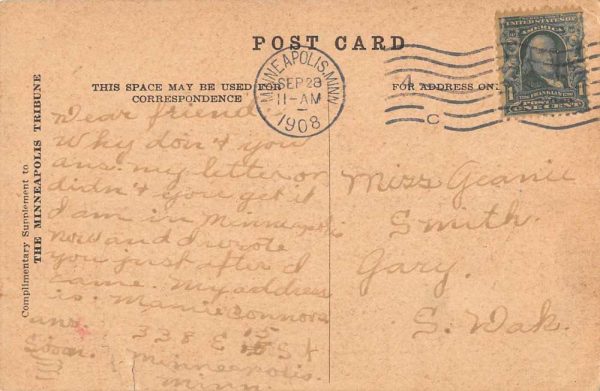 POST CARD
THIS SPACE MAY BE USED FOR
CORRESPONDENCE
FOR ADDRESS ON
MINNEAPOLIS, MINN.
SEP 28
11-AM
1908
C
UNITED STATES OF
AMERICA
FRANKLIN
POSTAGE
ONE CENT
Complimentary Supplement to
THE MINNEAPOLIS TRIBUNE
Dear friend
Why don't you
ans. my letter or
didn't you get it
I am in Minneapolis
now and I wrote
you just after I
came. My address
is. Mamie Connors
ans. 338 E 15 St
Soon. Minneapolis
Minn.
Miss Jeanie
Smith.
Gary.
S. Dak.